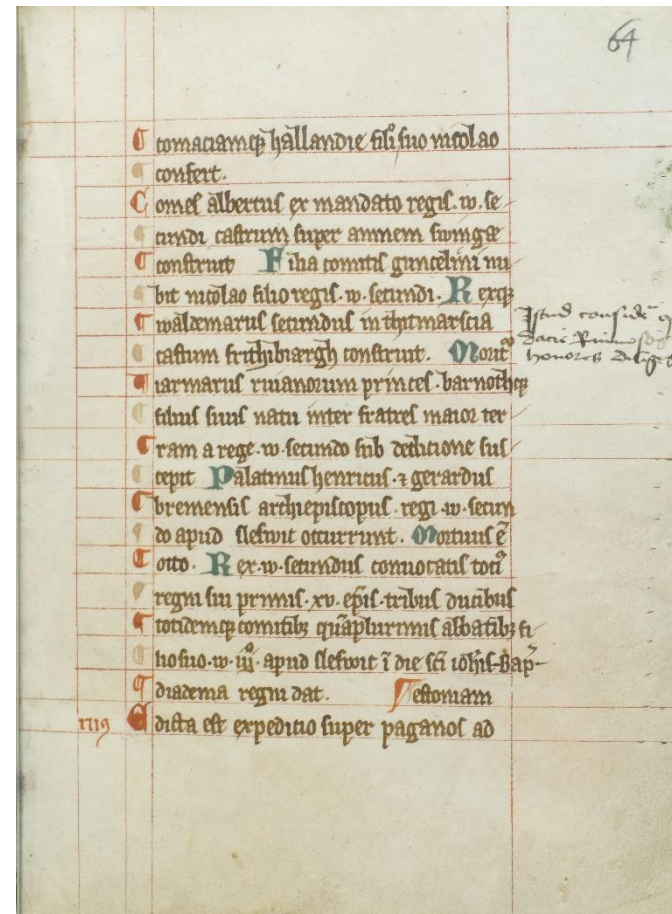 64
comaciamqꝫ hallandie filio suo nicolao
confert.
Comes albertus ex mandato regis. w. se
cundi castrum super amnem swingæ
construit Filia comitis guncelini nu
bit nicolao filio regis. w. secundi. Rexqꝫ
waldemarus secundus in thitmarscia
castum frithibiargh construit. Morit᷑
iarmarus ruianorum princeps. barnothqꝫ
filius suus natu inter fratres maior ter
ram a rege. w. secundo sub dedicione sus
cepit Palatinus henricus. ⁊ gerardus
bremensis archiepiscopus. regi. w. secun
do apud sleswit occurrunt. Mortuus ē
otto. Rex. w. secundus conuocatis toci᷒
regni sui primis. xv. ep̄is. tribus ducibus
totidemqꝫ comitibꝫ quāplurimis abbatibꝫ fi
lio suo. w. iijo. apud sleswit ī die sc̄i ioh̄is. Bap̄
diadema regni dat. estoniam
1219 Edicta est expeditio super paganos ad
Istud considera
dacie
honores